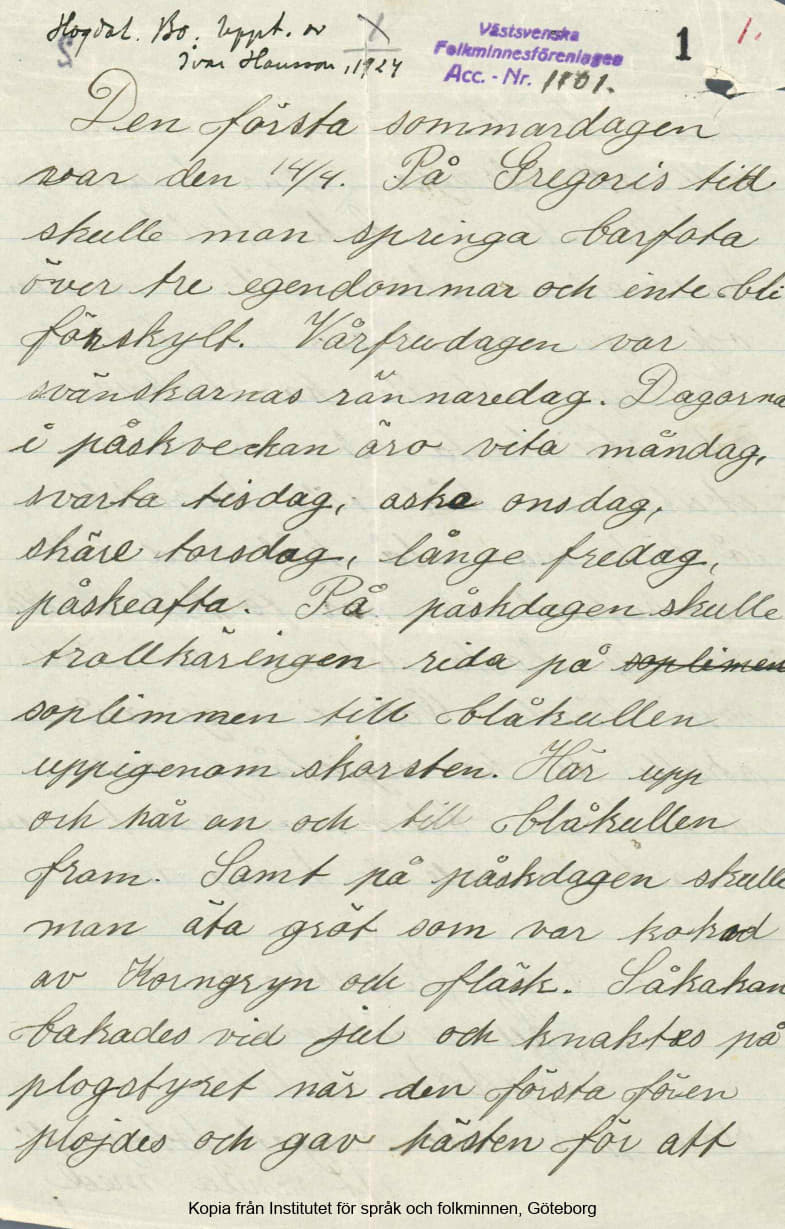 Hogdal. Bo. Uppt. av
Ivar Hansson, 1924
Västsvenska
Folkminnesföreningen
Acc. - Nr. 1101.
1
1.
Den första sommardagen
var den 14/4. På Gregoris tid
skulle man springa barfota
över tre egendommar och inte bli
förskylt. Vårfrudagen var
svänskarnas rännaredag. Dagarna
i påskveckan äro vita måndag,
svarta tisdag, aske onsdag,
skäre torsdag, långe fredag,
påskeafta. På påskdagen skulle
trollkäringen rida på soplimen
soplimmen till blåkullen
uppigenom skorsten. Här upp
och här an och till blåkullen
fram. Samt på påskdagen skulle
man äta gröt som var kokad
av Korngryn och fläsk. Såkakan
bakades vid jul och knaktes på
plogstyret när den första fören
plöjdes och gav hästen för att
Kopia från Institutet för språk och folkminnen, Göteborg